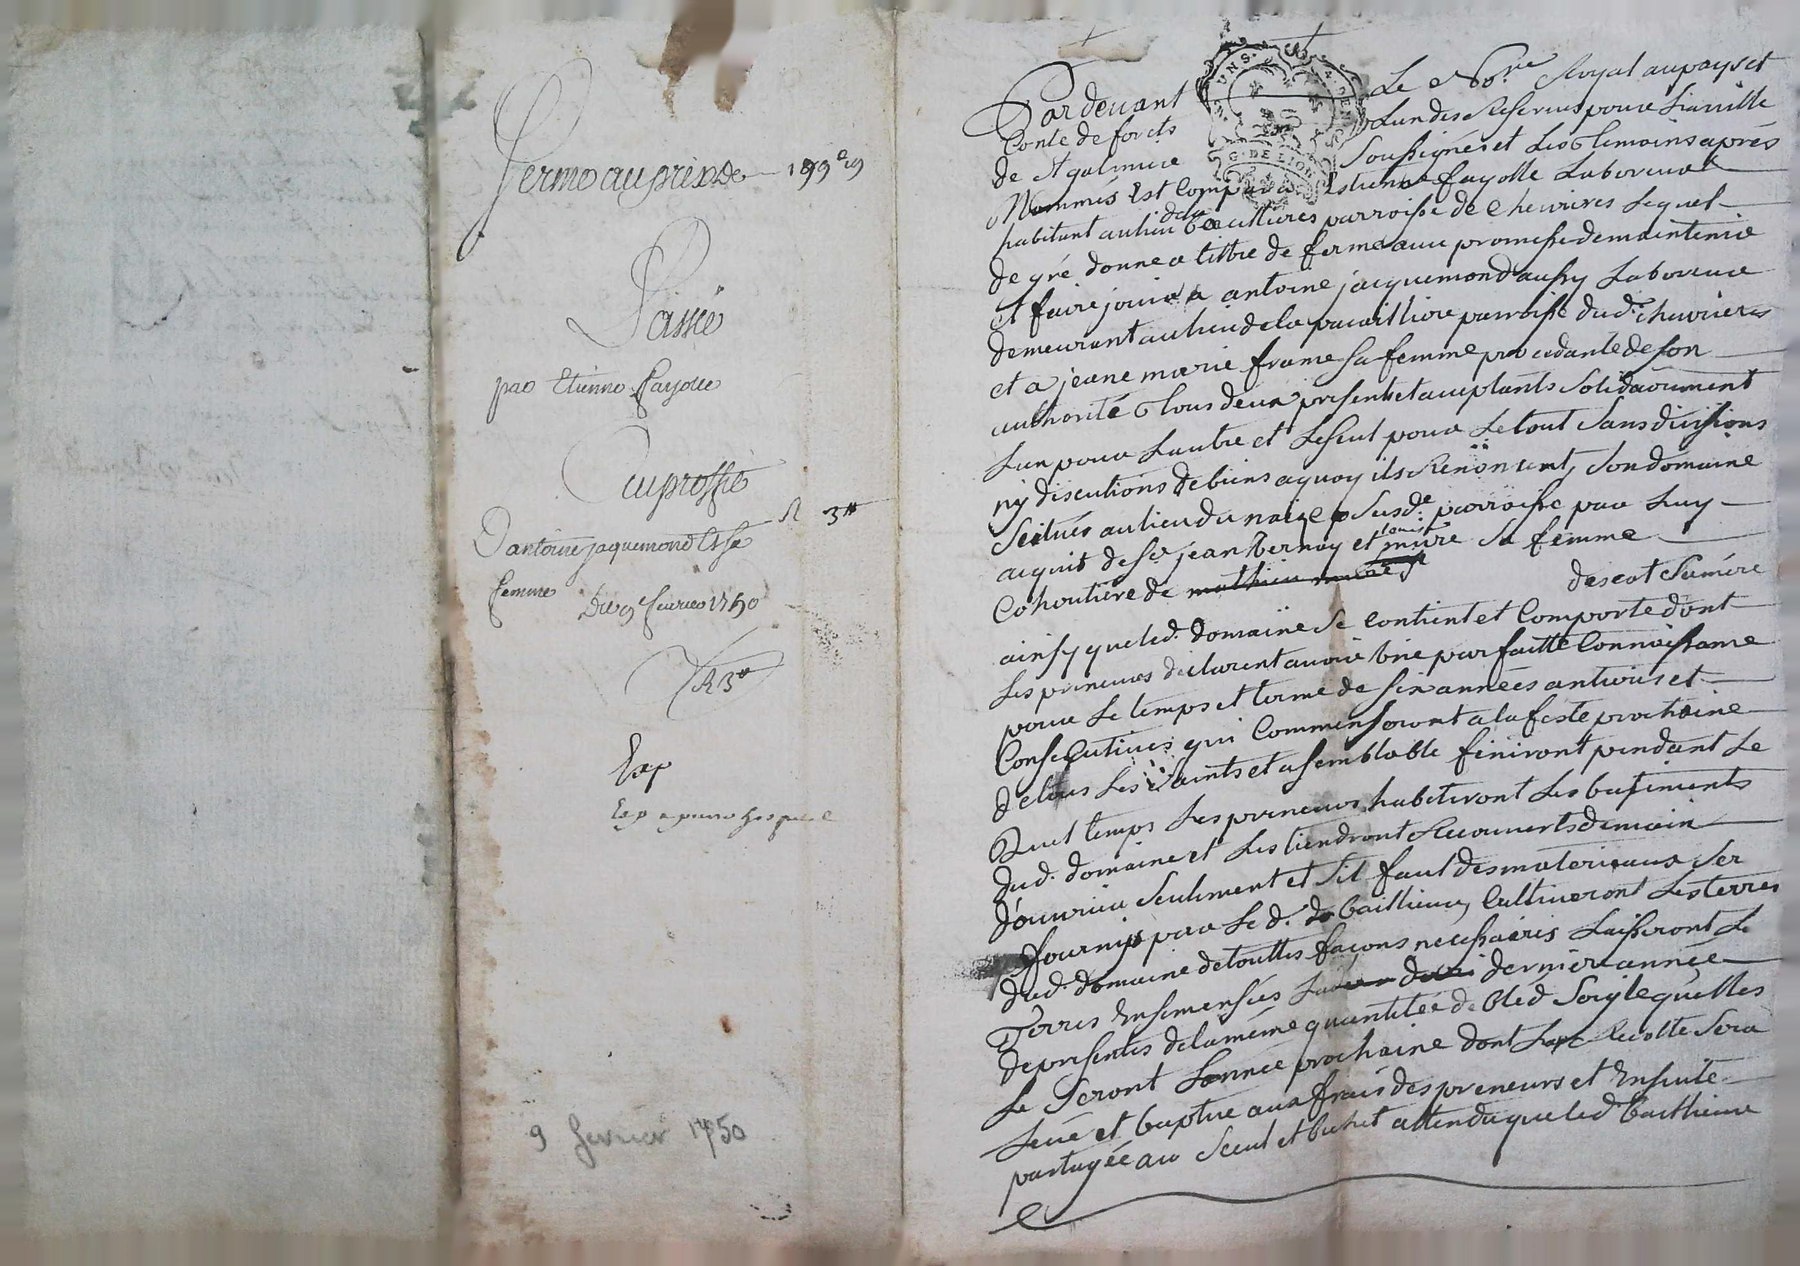 Ferme au prix de 199# 19
Passée
par Etienne fayolle
Au proffit
D'antoine jaquemond et Sa
R 3#
femme Du 9e feurier 1750
R 3#
Exp
9 fevrier 1750
Pardeuant Le No.re Royal au pays et
Conté de forets Lun des Reserues pour La uille
de St galmier Soussigné et Les Temoins après
Nommés Est Comparu Estienne fayolle Laboureur
habitant au lieu des uttieres parroisse de Cheurieres Lequel
de gré donne a titre de ferme auec promesse de maintenir
et faire jouir a antoine jacquemond aussy Laboureur
demeurant au lieu de la parroisse dud. cheurieres
et a jeane marie sa femme procedante de son
authorité Tous deux presents et acceptants Solidairement
Lun pour Lautre et Le Seul pour Le tout Sans diuisions
ny discutions de biens a quoy ils Renoncent, Son domaine
Scitués au lieu du naize Susd.e parroisse par Luy
acquit de Sr. jean Bernay et mure Sa femme
Cohoritiere de mathieu
ainsy que led. domaine Se Contient et Comporte dont
Les preneurs declarent auoir Une parfaitte Connoissance
pour Le temps et terme de Six années antieres et
Consecutiues qui Commenseront a la feste prochaine
de tous Les Saints et a semblable finiront pendant Le
quel temps Les preneurs habiteront Les batiments
dud. domaine et Les tiendront Recouuerts de main
d'ouurier Seulement et Sil faut des materiaux Ser
fournis par Le d. bailleur, Cultiueront Les terres
dud. domaine de touttes façons necessaires Laisseront Le
Terres Ensemensées derniere année
de presentes de la même quantitée de bled Seigle quelles
Le Seront Lannée prochaine dont La Recolte Sera
Leué et battue aux frais des preneurs et Ensuite
partagée au Seul et attendu que led. bailleur